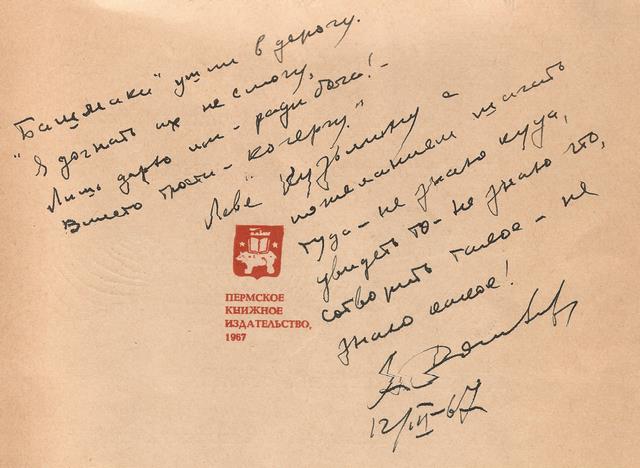 Башмаки" ушли в дорогу.
"Я догнать их не смогу,
Лишь дарю им - ради бога! -
Вместо трости - кочергу."
Лёве Кузьмину с
пожеланием шагать
туда - не знаю куда,
увидеть то - не знаю что,
сотворить такое - не
знаю какое!
12/III-67
ПЕРМСКОЕ
КНИЖНОЕ
ИЗДАТЕЛЬСТВО,
1967